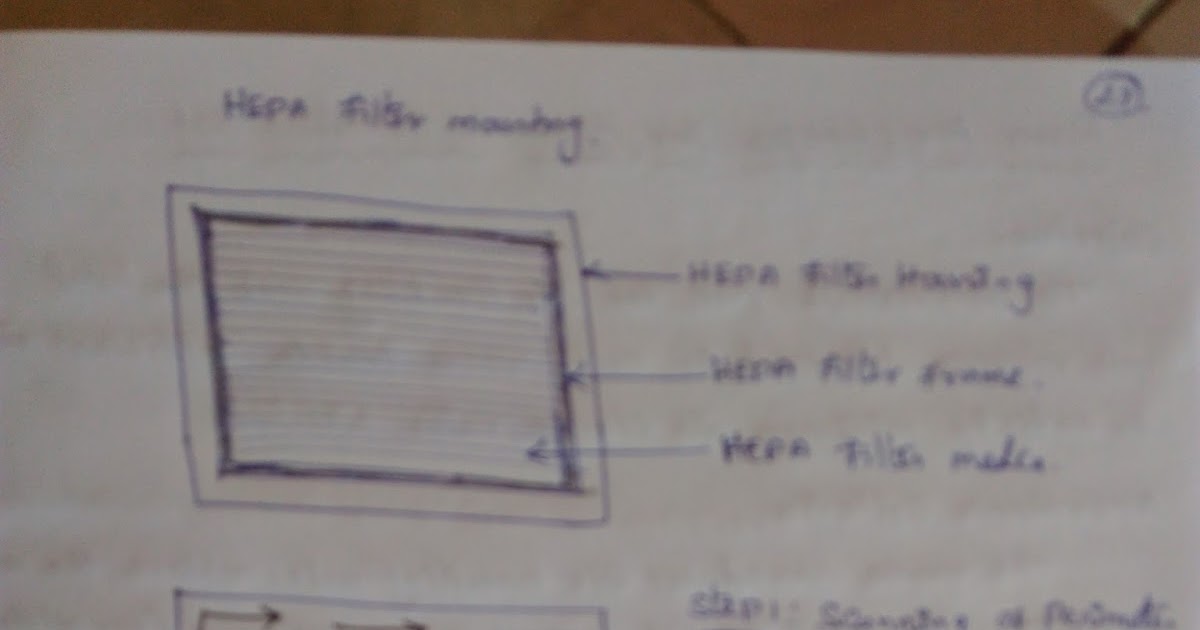 HEPA Filter mounting.
HEPA Filter Housing
HEPA Filter Frame.
HEPA Filter media.
Step1: Scanning of